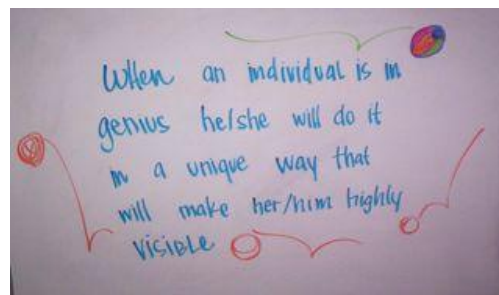 When an individual is in
genius he/she will do it
in a unique way that
will make her/him highly
visible